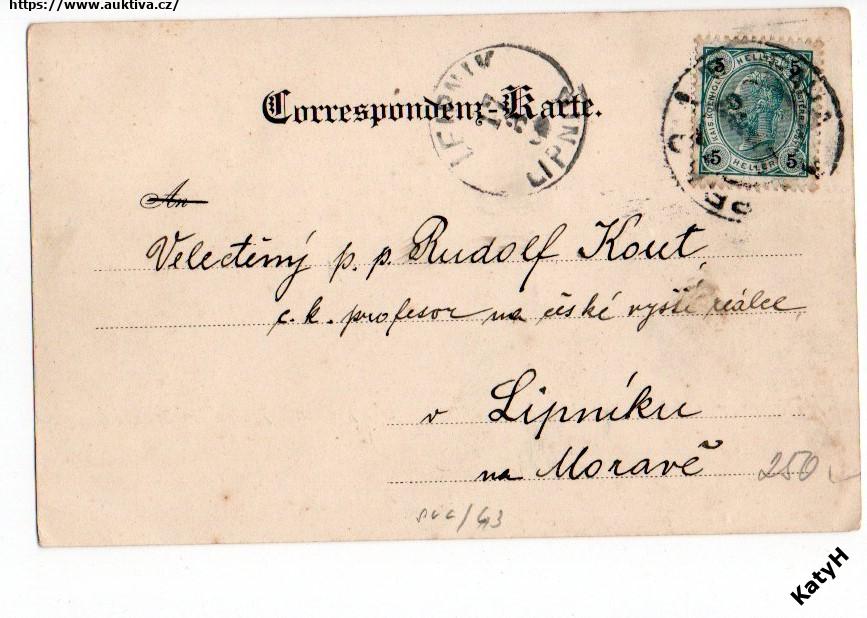 https://www.auktiva.cz/
Correspondenz-Karte.
LEIPNIK
LIPNÍK
5 5
HELLER
5 5
HELLER
An
Velectěný p. p. Rudolf Kout
c. k. profesor na české vyšší reálce
v Lipníku
na Moravě
250
KatyH